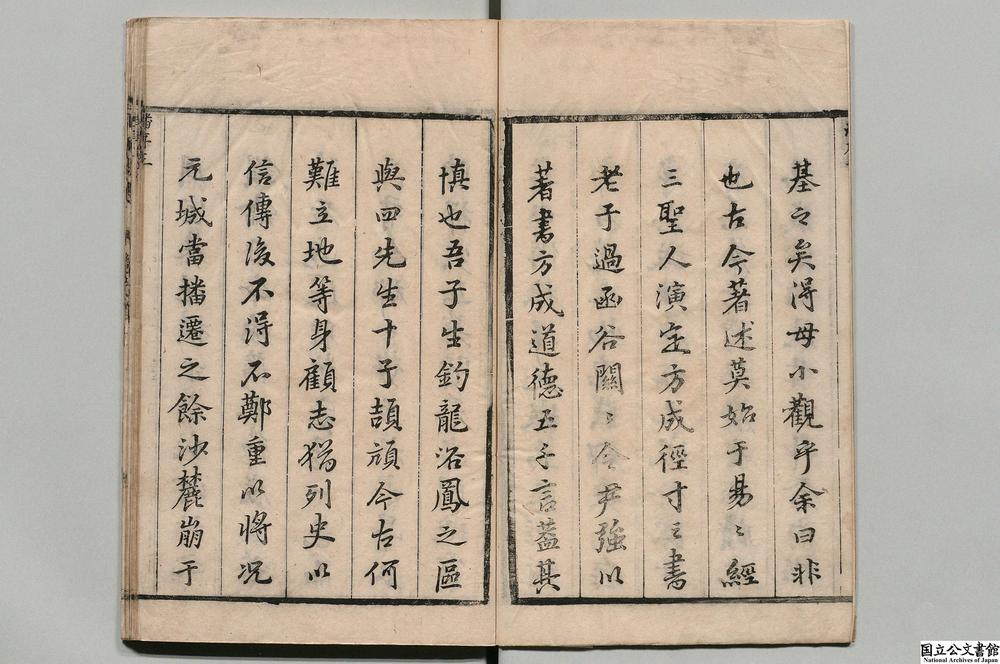 基之矣得毋小觀乎余曰非
也古今著述莫始于易〻經
三聖人演定方成徑寸之書
老子過函谷關〻令尹強以
著書方成道德五千言蓋其
慎也吾子生釣龍浴鳳之區
與四先生十子頡頏今古何
難立地等身顧志猶列史以
信傳後不得不鄭重以將况
元城當播遷之餘沙麓崩于
国立公文書館
National Archives of Japan